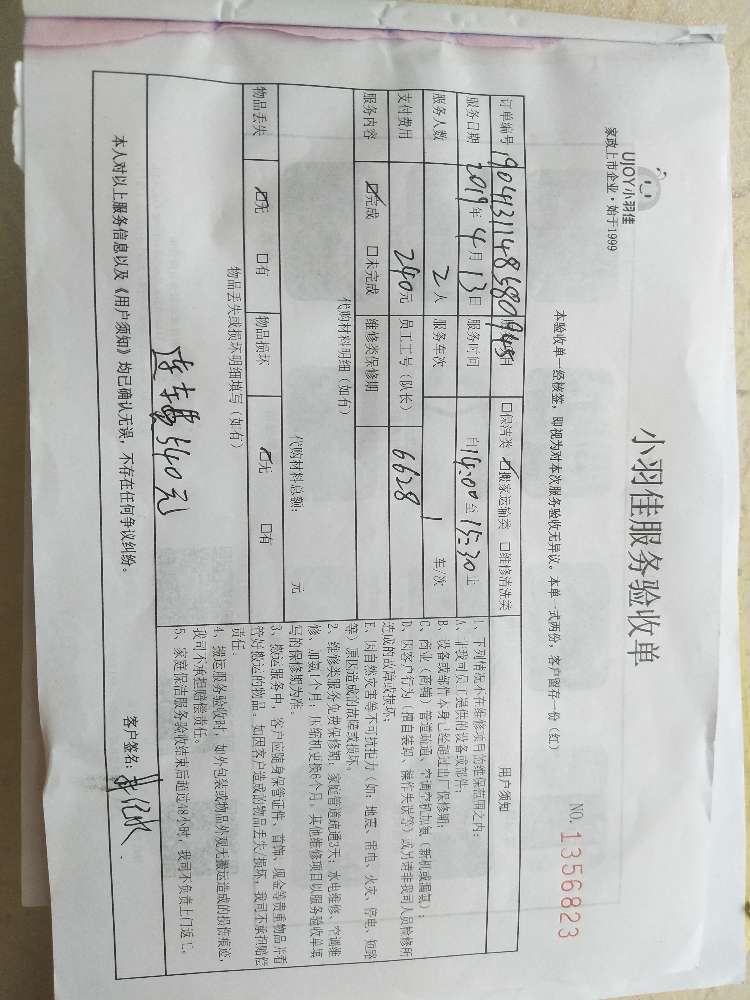 UJOY小羽佳
家政上市企业·始于1999
小羽佳服务验收单
NO. 1356823
本验收单一经核签，即视为对本次服务验收无异议。本单一式两份，客户留存一份（红）
订单编号 190413114868094
□保洁类 ☑搬家运输类 □维修清洗类
服务日期 2019年4月13日 服务时间 自14:00至15:30止
服务人数 2人 服务车次 1 车/次
支付费用 240元 员工工号（队长） 6628
服务内容 ☑完成 □未完成 维修类保修期
代购材料明细（如有）
代购材料总额： 元
物品丢失 ☑无 □有 物品损坏 ☑无 □有
物品丢失或损坏明细填写（如有）
连车费540元
用户须知
1、下列情况不在维修项目的维保范围之内：
A、非我司员工提供的设备或部件；
B、设备或部件本身已经超过出厂保修期；
C、商业（商铺）管道疏通、空调空机加氨（新机或漏氨）；
D、因客户行为（擅自装卸、操作失误等）或另请非我司人员检修所
造成的故障或损坏；
E、因自然灾害等不可抗拒力（如：地震、雷电、火灾、停电、短路
等）原因造成的故障或损坏。
2、维修类服务免费保修期：家庭管道疏通3天；水电维修、空调维
修、加氨1个月；压缩机更换6个月，其他维修项目以服务验收单填
写的保修期为准。
3、搬运服务中，客户应随身保管证件、首饰、现金等贵重物品并看
管好搬运的物品，如因客户造成的物品丢失/损坏，我司不承担赔偿
责任。
4、搬运服务验收时，如外包装或物品外观无搬运造成的损伤痕迹，
我司不承担赔偿责任。
5、家庭保洁服务验收结束后超过48小时，我司不负责上门返工。
本人对以上服务信息以及《用户须知》均已确认无误，不存在任何争议纠纷。
客户签名：